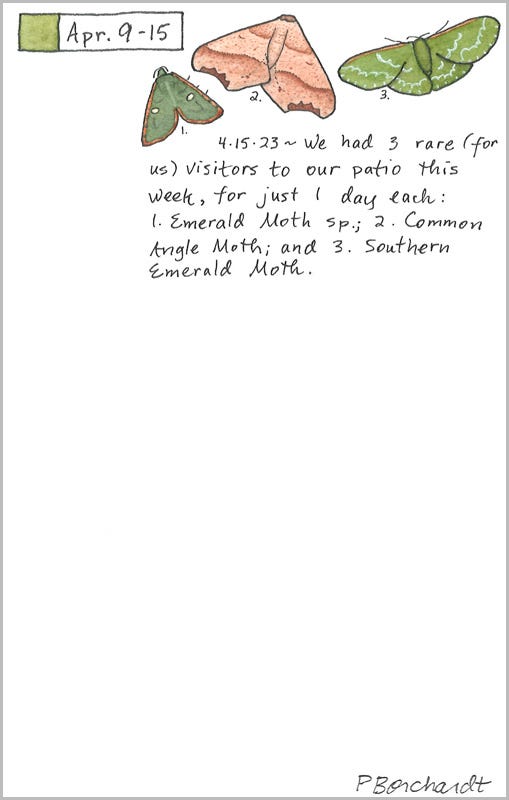 Apr. 9-15
1.
2.
3.
4.15.23 ~ We had 3 rare (for
us) visitors to our patio this
week, for just 1 day each:
1. Emerald Moth sp.; 2. Common
Angle Moth; and 3. Southern
Emerald Moth.
P Borchardt